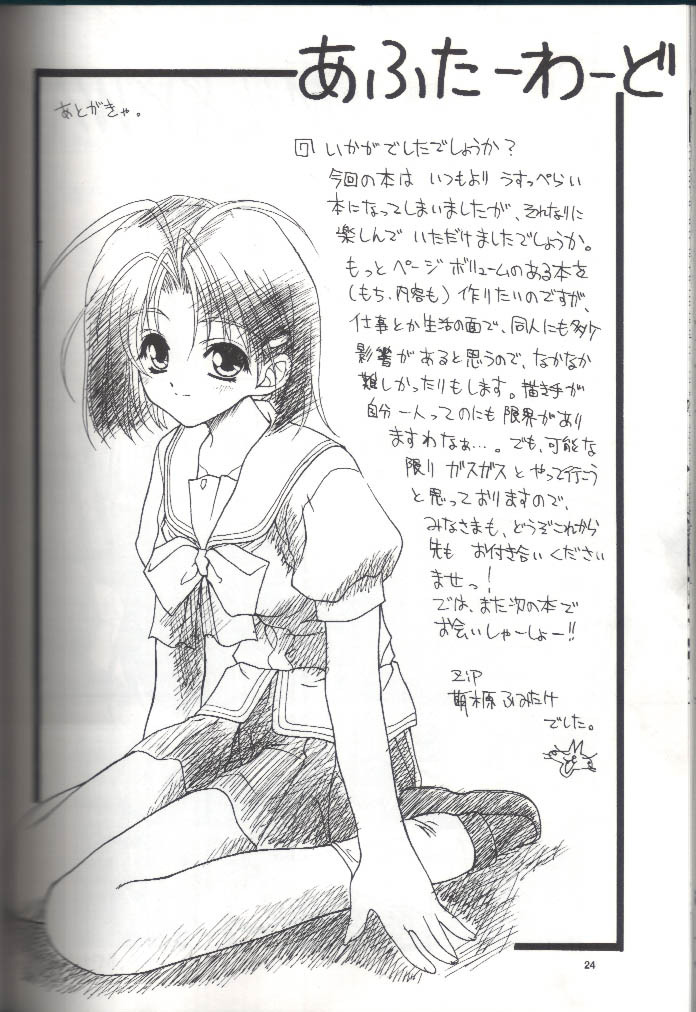 あふたーわーど
あとがきゃ。
いかがでしたでしょうか?
今回の本は いつもより うすっぺらい
本になってしまいましたが、それなりに
楽しんで いただけましたでしょうか。
もっと ページ ボリュームのある本を
(もち、内容も) 作りたいのですが、
仕事とか生活の面で、同人にも多々
影響があると思うので、なかなか
難しかったりもします。描き手が
自分 一人ってのにも 限界があり
ますわなぁ…。でも、可能な
限り ガスガスと やって行こう
と思っておりますので、
みなさまも、どうぞこれから
先も お付き合い ください
ませっ!
では、また次の本で
お会いしゃーしょー!!
ZiP
萌木原ふみたけ
でした。
24